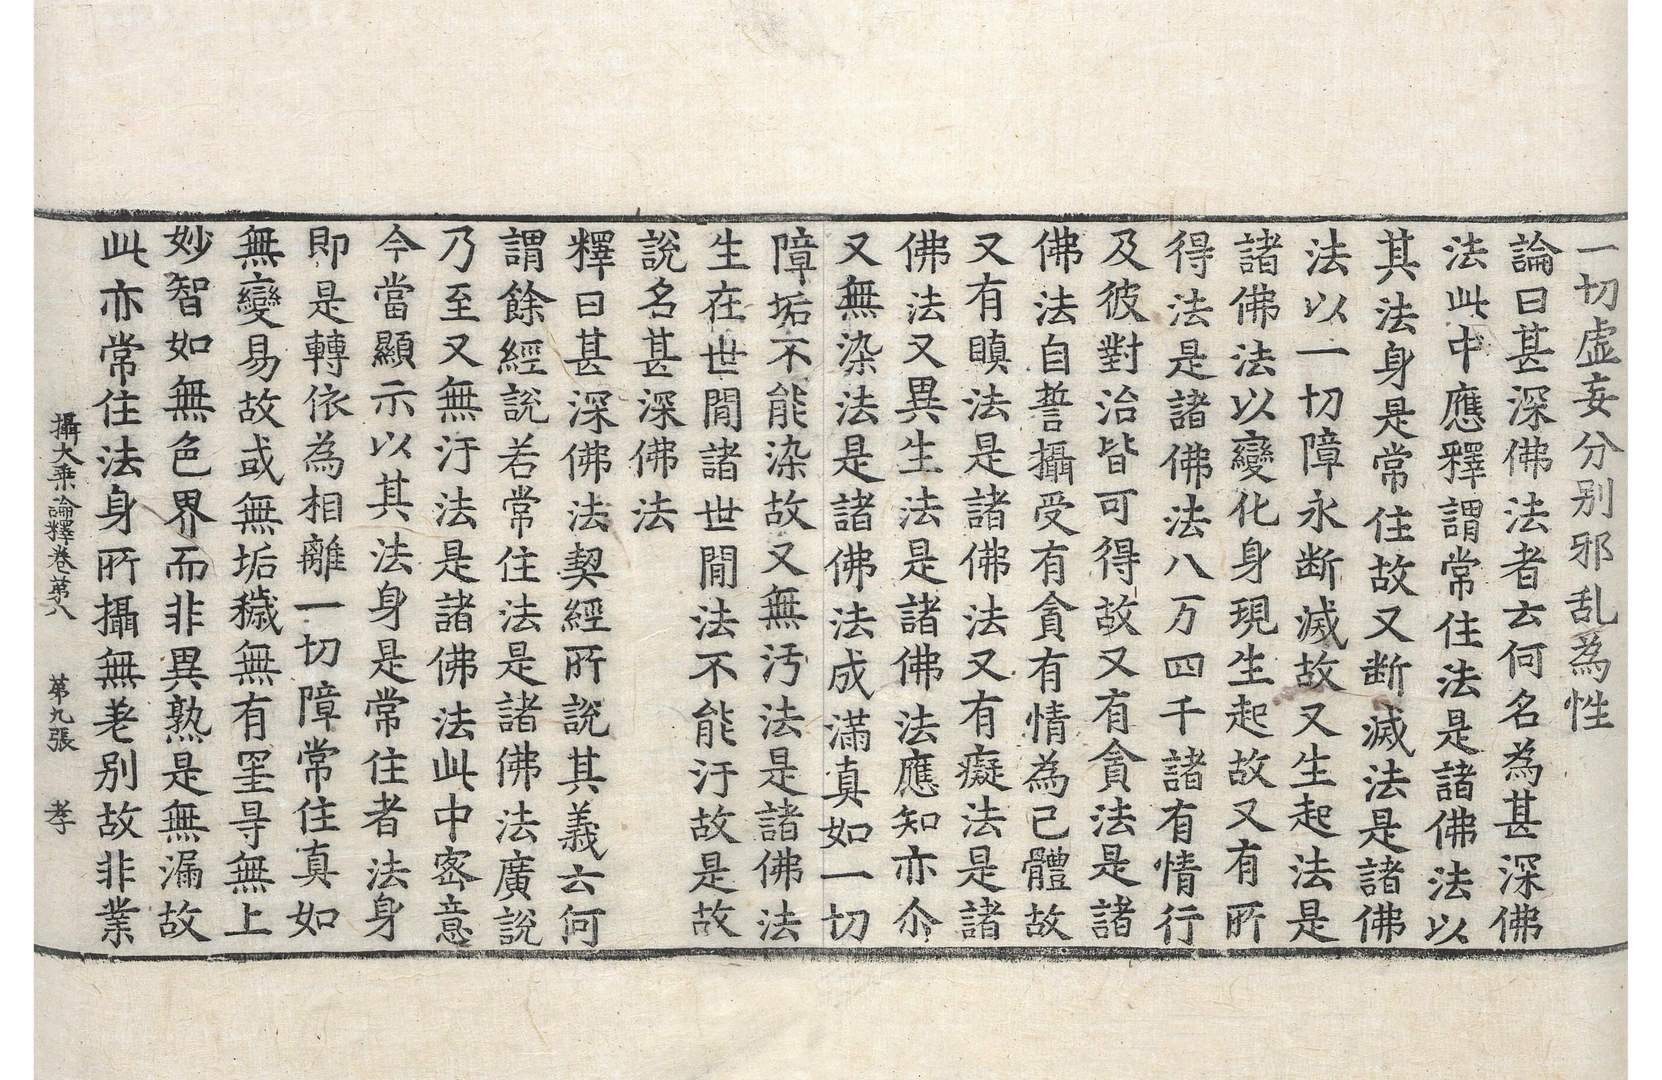 一切虛妄分別邪乱為性
論曰甚深佛法者云何名為甚深佛
法此中應釋謂常住法是諸佛法以
其法身是常住故又断滅法是諸佛
法以一切障永断滅故又生起法是
諸佛法以變化身現生起故又有所
得法是諸佛法八万四千諸有情行
及彼對治皆可得故又有貪法是諸
佛法自誓攝受有貪有情為己體故
又有瞋法是諸佛法又有癡法是諸
佛法又異生法是諸佛法應知亦尒
又無染法是諸佛法成滿真如一切
障垢不能染故又無汚法是諸佛法
生在世閒諸世閒法不能汙故是故
說名甚深佛法
釋曰甚深佛法契經所說其義云何
謂餘經說若常住法是諸佛法廣說
乃至又無汙法是諸佛法此中密意
今當顯示以其法身是常住者法身
即是轉依為相離一切障常住真如
無變易故或無垢穢無有罣㝵無上
妙智如無色界而非異熟是無漏故
此亦常住法身所攝無差別故非業
攝大乘論釋卷苐八　苐九張　孝